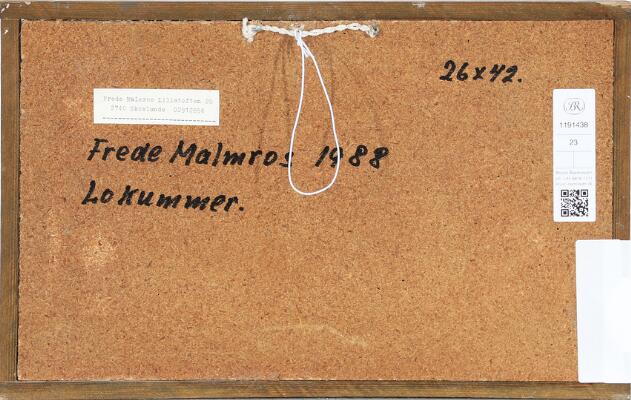 26x42.
Frede Malmros Lilletoften 25
2740 Skovlunde 02912656
Frede Malmros 1988
Lokummer.
BR
1191438
23